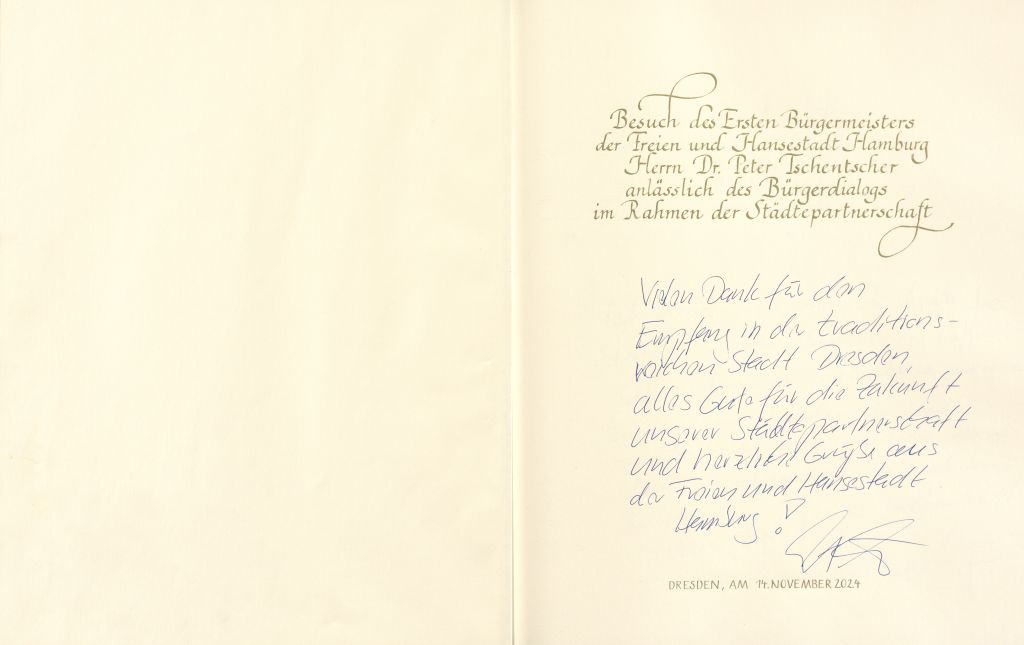 Besuch des Ersten Bürgermeisters
der Freien und Hansestadt Hamburg
Herrn Dr. Peter Tschentscher
anlässlich des Bürgerdialogs
im Rahmen der Städtepartnerschaft
Vielen Dank für den
Empfang in der traditions-
reichen Stadt Dresden,
alles Gute für die Zukunft
unserer Städtepartnerschaft
und herzliche Grüße aus
der Freien und Hansestadt
Hamburg!
DRESDEN, AM 14. NOVEMBER 2024